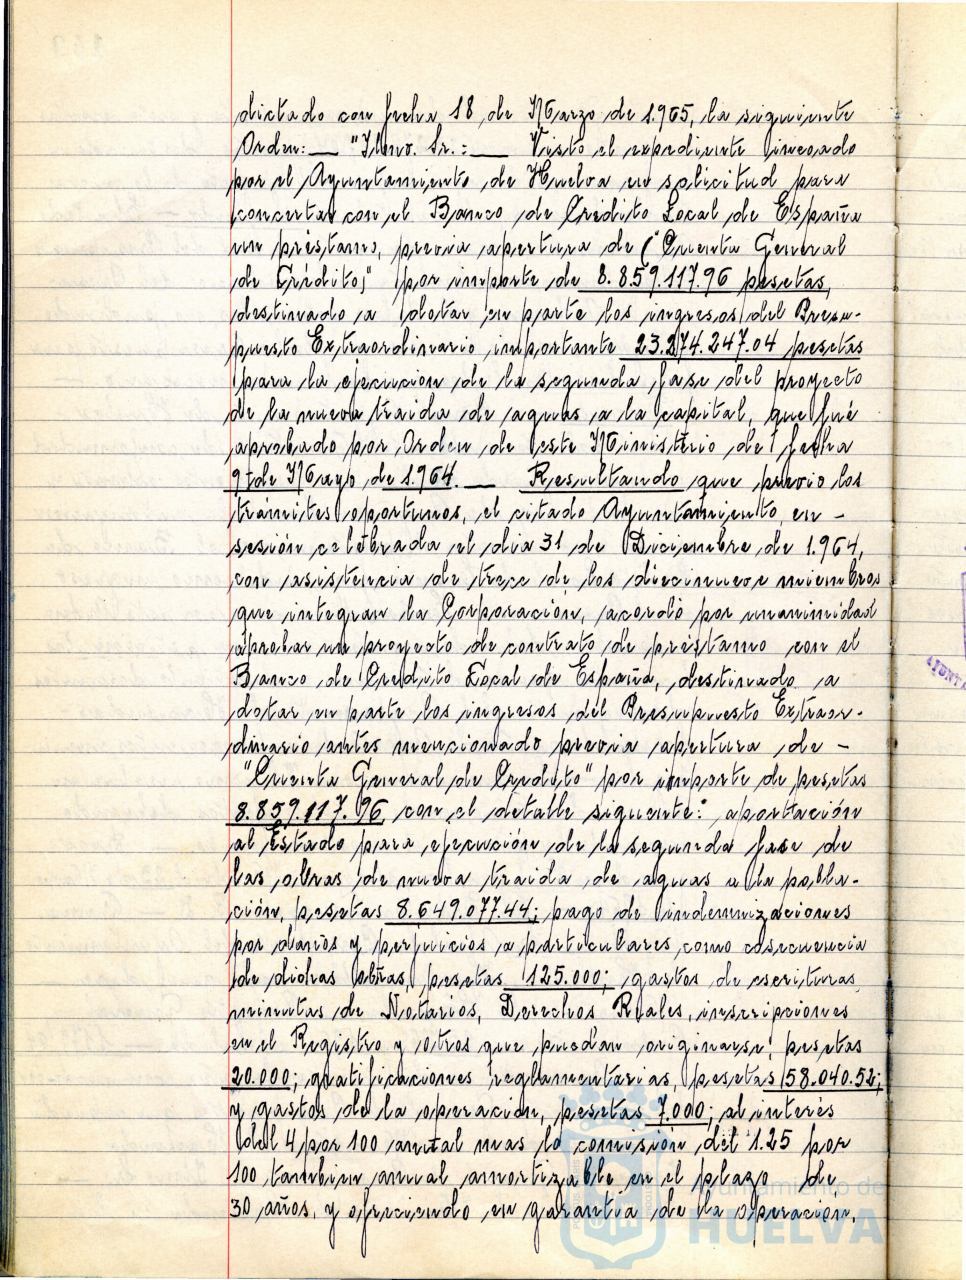 dictado con fecha 18 de Marzo de 1.965, la siguiente
Orden: — "Ilmo. Sr.: — Visto el expediente incoado
por el Ayuntamiento de Huelva en solicitud para
concertar con el Banco de Crédito Local de España
un préstamo, previa apertura de "Cuenta General
de Crédito," por importe de 8.859.117.96 pesetas,
destinado a dotar en parte los ingresos del Presu-
puesto Extraordinario importante 23.274.247.04 pesetas
para la ejecucion de la segunda fase del proyecto
de la nueva traida de aguas a la capital, que fué
aprobado por Orden de este Ministerio de fecha
9 de Mayo de 1.964. — Resultando que previo los
trámites oportunos, el citado Ayuntamiento, en -
sesión celebrada el dia 31 de Diciembre de 1.964,
con asistencia de trece de los diecinueve miembros
que integran la Corporación, acordó por unanimidad
aprobar un proyecto de contrato de préstamo con el
Banco de Credito Local de España, destinado a
dotar en parte los ingresos del Presupuesto Extraor-
dinario antes mencionado previa apertura de -
"Cuenta General de Credito" por importe de pesetas
8.859.117.96 con el detalle siguiente: aportación
al Estado para ejecución de la segunda fase de
las obras de nueva traida de aguas a la pobla-
ción, pesetas 8.649.077.44; pago de indemnizaciones
por daños y perjuicios a particulares como cosecuencia
de dichas obras, pesetas 125.000; gastos de escrituras,
minutas de Notarios, Derechos Reales, inscripciones
en el Registro y otros que puedan originarse, pesetas
20.000; gratificaciones reglamentarias, pesetas 58.040.52;
y gastos de la operación, pesetas 7.000; al interés
del 4 por 100 anual mas la comisión del 1.25 por
100, tambien anual amortizable en el plazo de
30 años, y ofreciendo en garantia de la operación,
AYUNTA
Ayuntamiento de
HUELVA